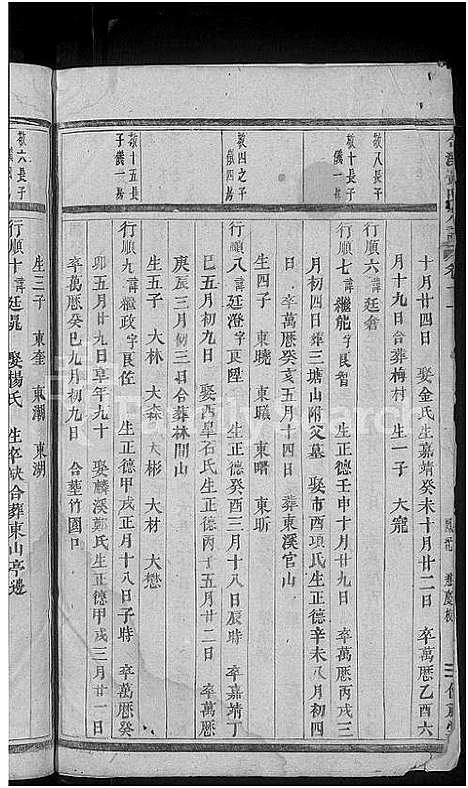 十月廿四日 娶金氏生嘉靖癸未十月廿二日 卒萬曆乙酉六
月十九日合葬梅村 生一子 大寵
敬八長子
行順六諱廷耆
敬十長子
儀一房
行順七諱繼能字良智 生正德壬申十月廿九日 卒萬曆丙戌三
月初四日葬三塘山附父墓 娶市酉項氏生正德辛未八月初四
日 卒萬曆癸亥五月十四日 葬東溪官山
生 東曉 東曦 東曙 東昕
敬四之子
儀四房
行順八諱廷澄字良陞 生正德癸酉三月十八日辰時 卒嘉靖丁
巳五月初九日 娶西皐石氏生正德丙子五月廿二日 卒萬曆
庚辰三月初三日合葬林間山
生五子 大林 大森 大彬 大材 大懋
敬十五長
子儀一房
行順九諱繼政字良佐 生正德甲戌正月十八日子時 卒萬曆癸
卯五月廿九日享年九十 娶麟溪鄭氏生正德甲戌三月廿一日
卒萬曆癸巳九月初九日 合塟竹園口
生三子 東奎 東潮 東湖
敬六長子
行順十諱廷晁 娶楊氏 生卒缺合葬東山亭邊